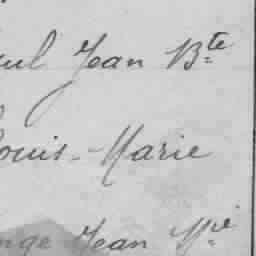 ul Jean Bte
Louis-Marie
nge Jean Mie